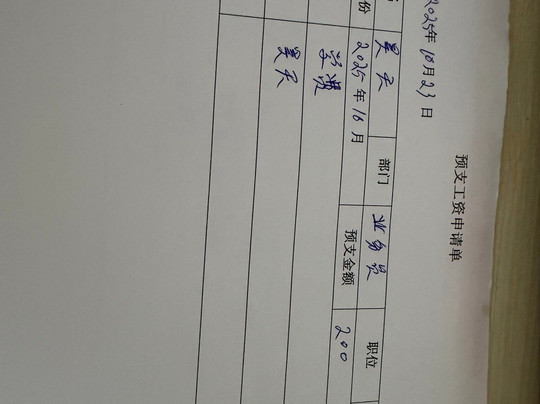 预支工资申请单
2025年10月23日
吴天 部门 业务员 职位
份 2025年10月 预支金额 200
学费
吴天